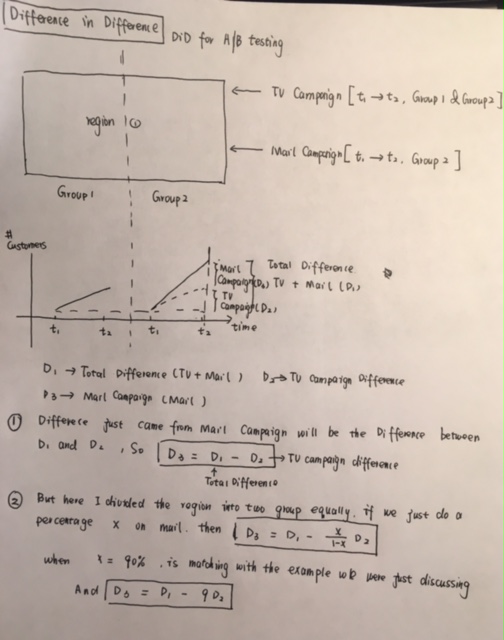 Difference in Difference DiD for A/B testing
TV Campaign [ t₁ → t₂, Group 1 & Group 2 ]
region
Mail Campaign [ t₁ → t₂, Group 2 ]
Group 1 Group 2
#
Customers
Mail Campaign(D₃)
TV Campaign(D₂)
Total Difference
TV + Mail (D₁)
t₁ t₂ t₁ t₂ time
D₁ → Total Difference (TV + Mail) D₂ → TV Campaign Difference
D₃ → Mail Campaign (Mail)
① Difference just came from Mail Campaign will be the Difference between
D₁ and D₂, So D₃ = D₁ - D₂ → TV campaign difference
↑
Total Difference
② But here I divided the region into two group equally. if we just do a
percentage x on mail. then D₃ = D₁ - x/1-x D₂
when x = 90%, is matching with the example we were just discussing
And D₃ = D₁ - 9 D₂